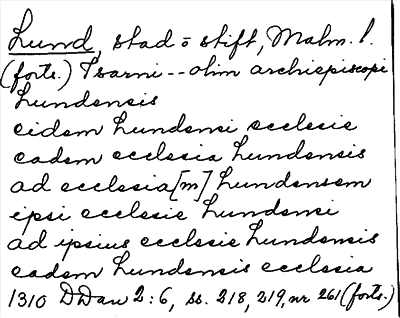 Lund, stad o stift, Malm. l.
(forts.) Isarni -- olim archiepiscopi
Lundensis
eidem Lundensi ecclesie
eadem ecclesia Lundensis
ad ecclesia[m] Lundensem
ipsi ecclesie Lundensi
ad ipsius ecclesie Lundensis
eadem Lundensis ecclesia
1310 DDan 2:6, ss. 218, 219, nr 261 (forts.)